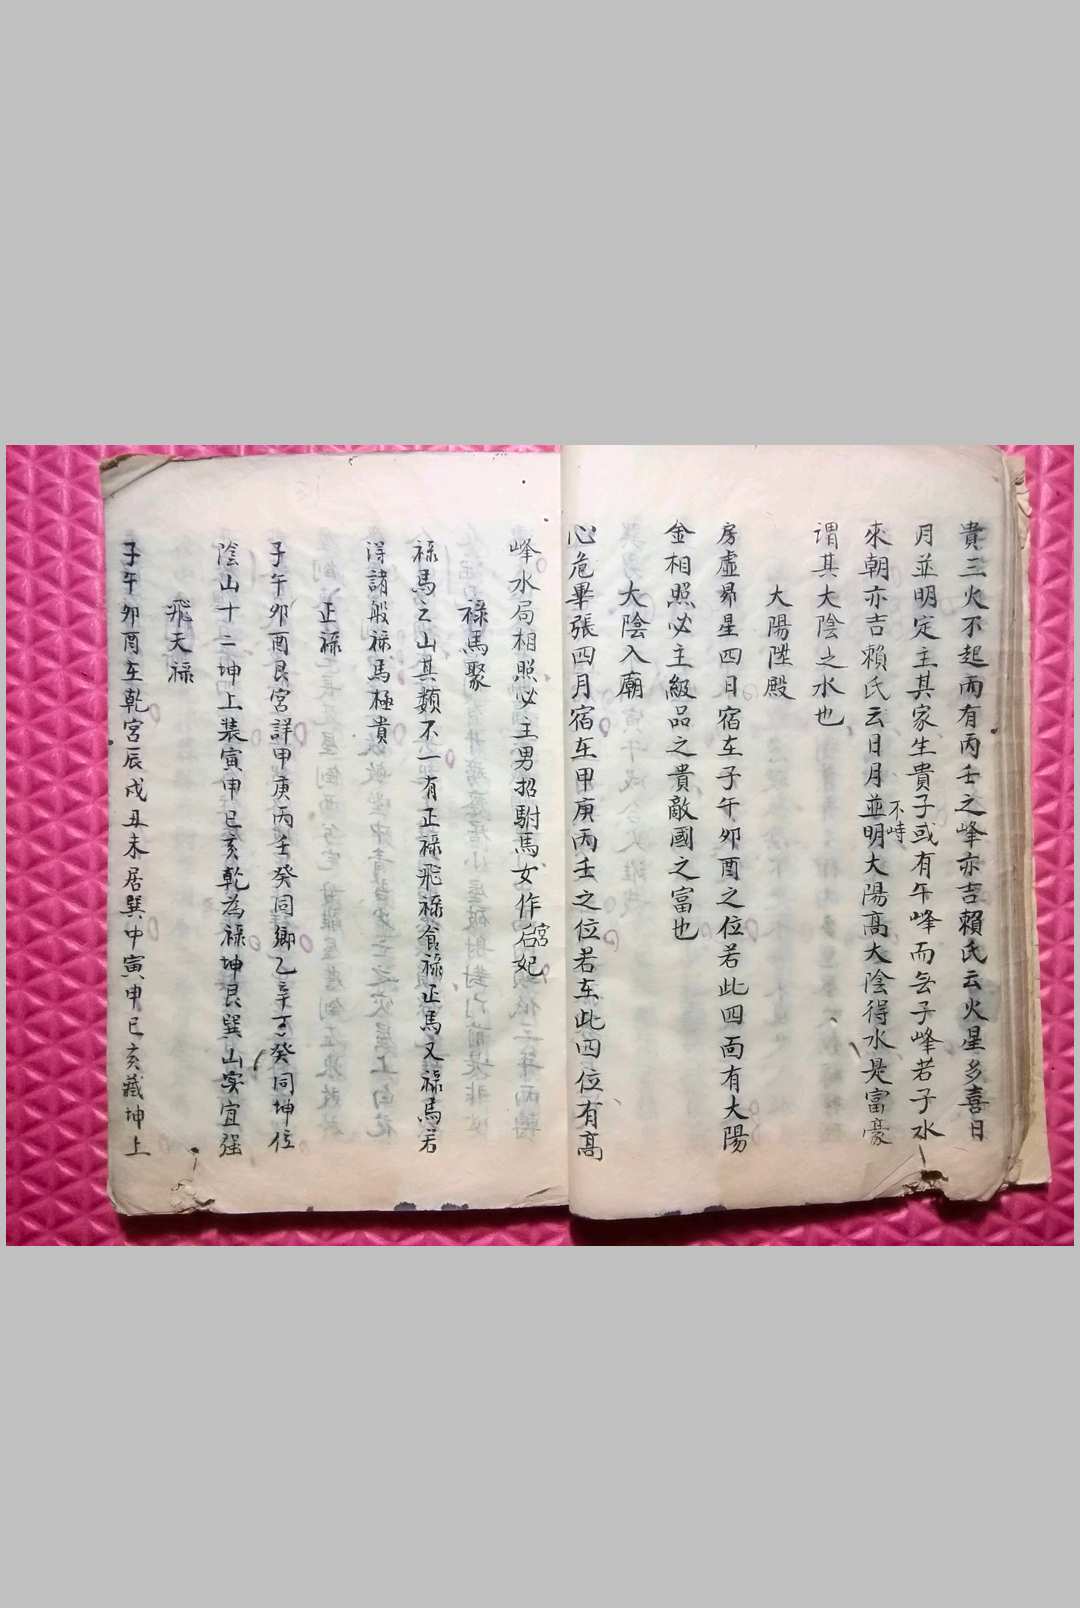 貴三火不起而有丙壬之峰亦吉賴氏云火星多喜日
月並明定主其家生貴子或有午峰而無子峰若子水
不峙
來朝亦吉賴氏云日月並明大陽高大陰得水是富豪
谓其大陰之水也
大陽陞殿
房虛昴星四日宿在子午卯酉之位若此四面有大陽
金相照必主級品之貴敵國之富也
大陰入廟
心危畢張四月宿在甲庚丙壬之位若在此四位有高
峰水局相照必主男招駙馬女作后妃
宮
禄馬聚
禄馬之山其類不一有正禄飛禄食禄正馬又禄馬若
淂諸般禄馬極貴
正禄
子午卯酉艮宮詳甲庚丙壬癸同鄉乙辛丁癸同坤位
陰山十二坤上装寅申巳亥乾為禄坤艮巽山实宜强
飛天禄
子午卯酉在乾宮辰戌丑未居巽中寅申巳亥藏坤上